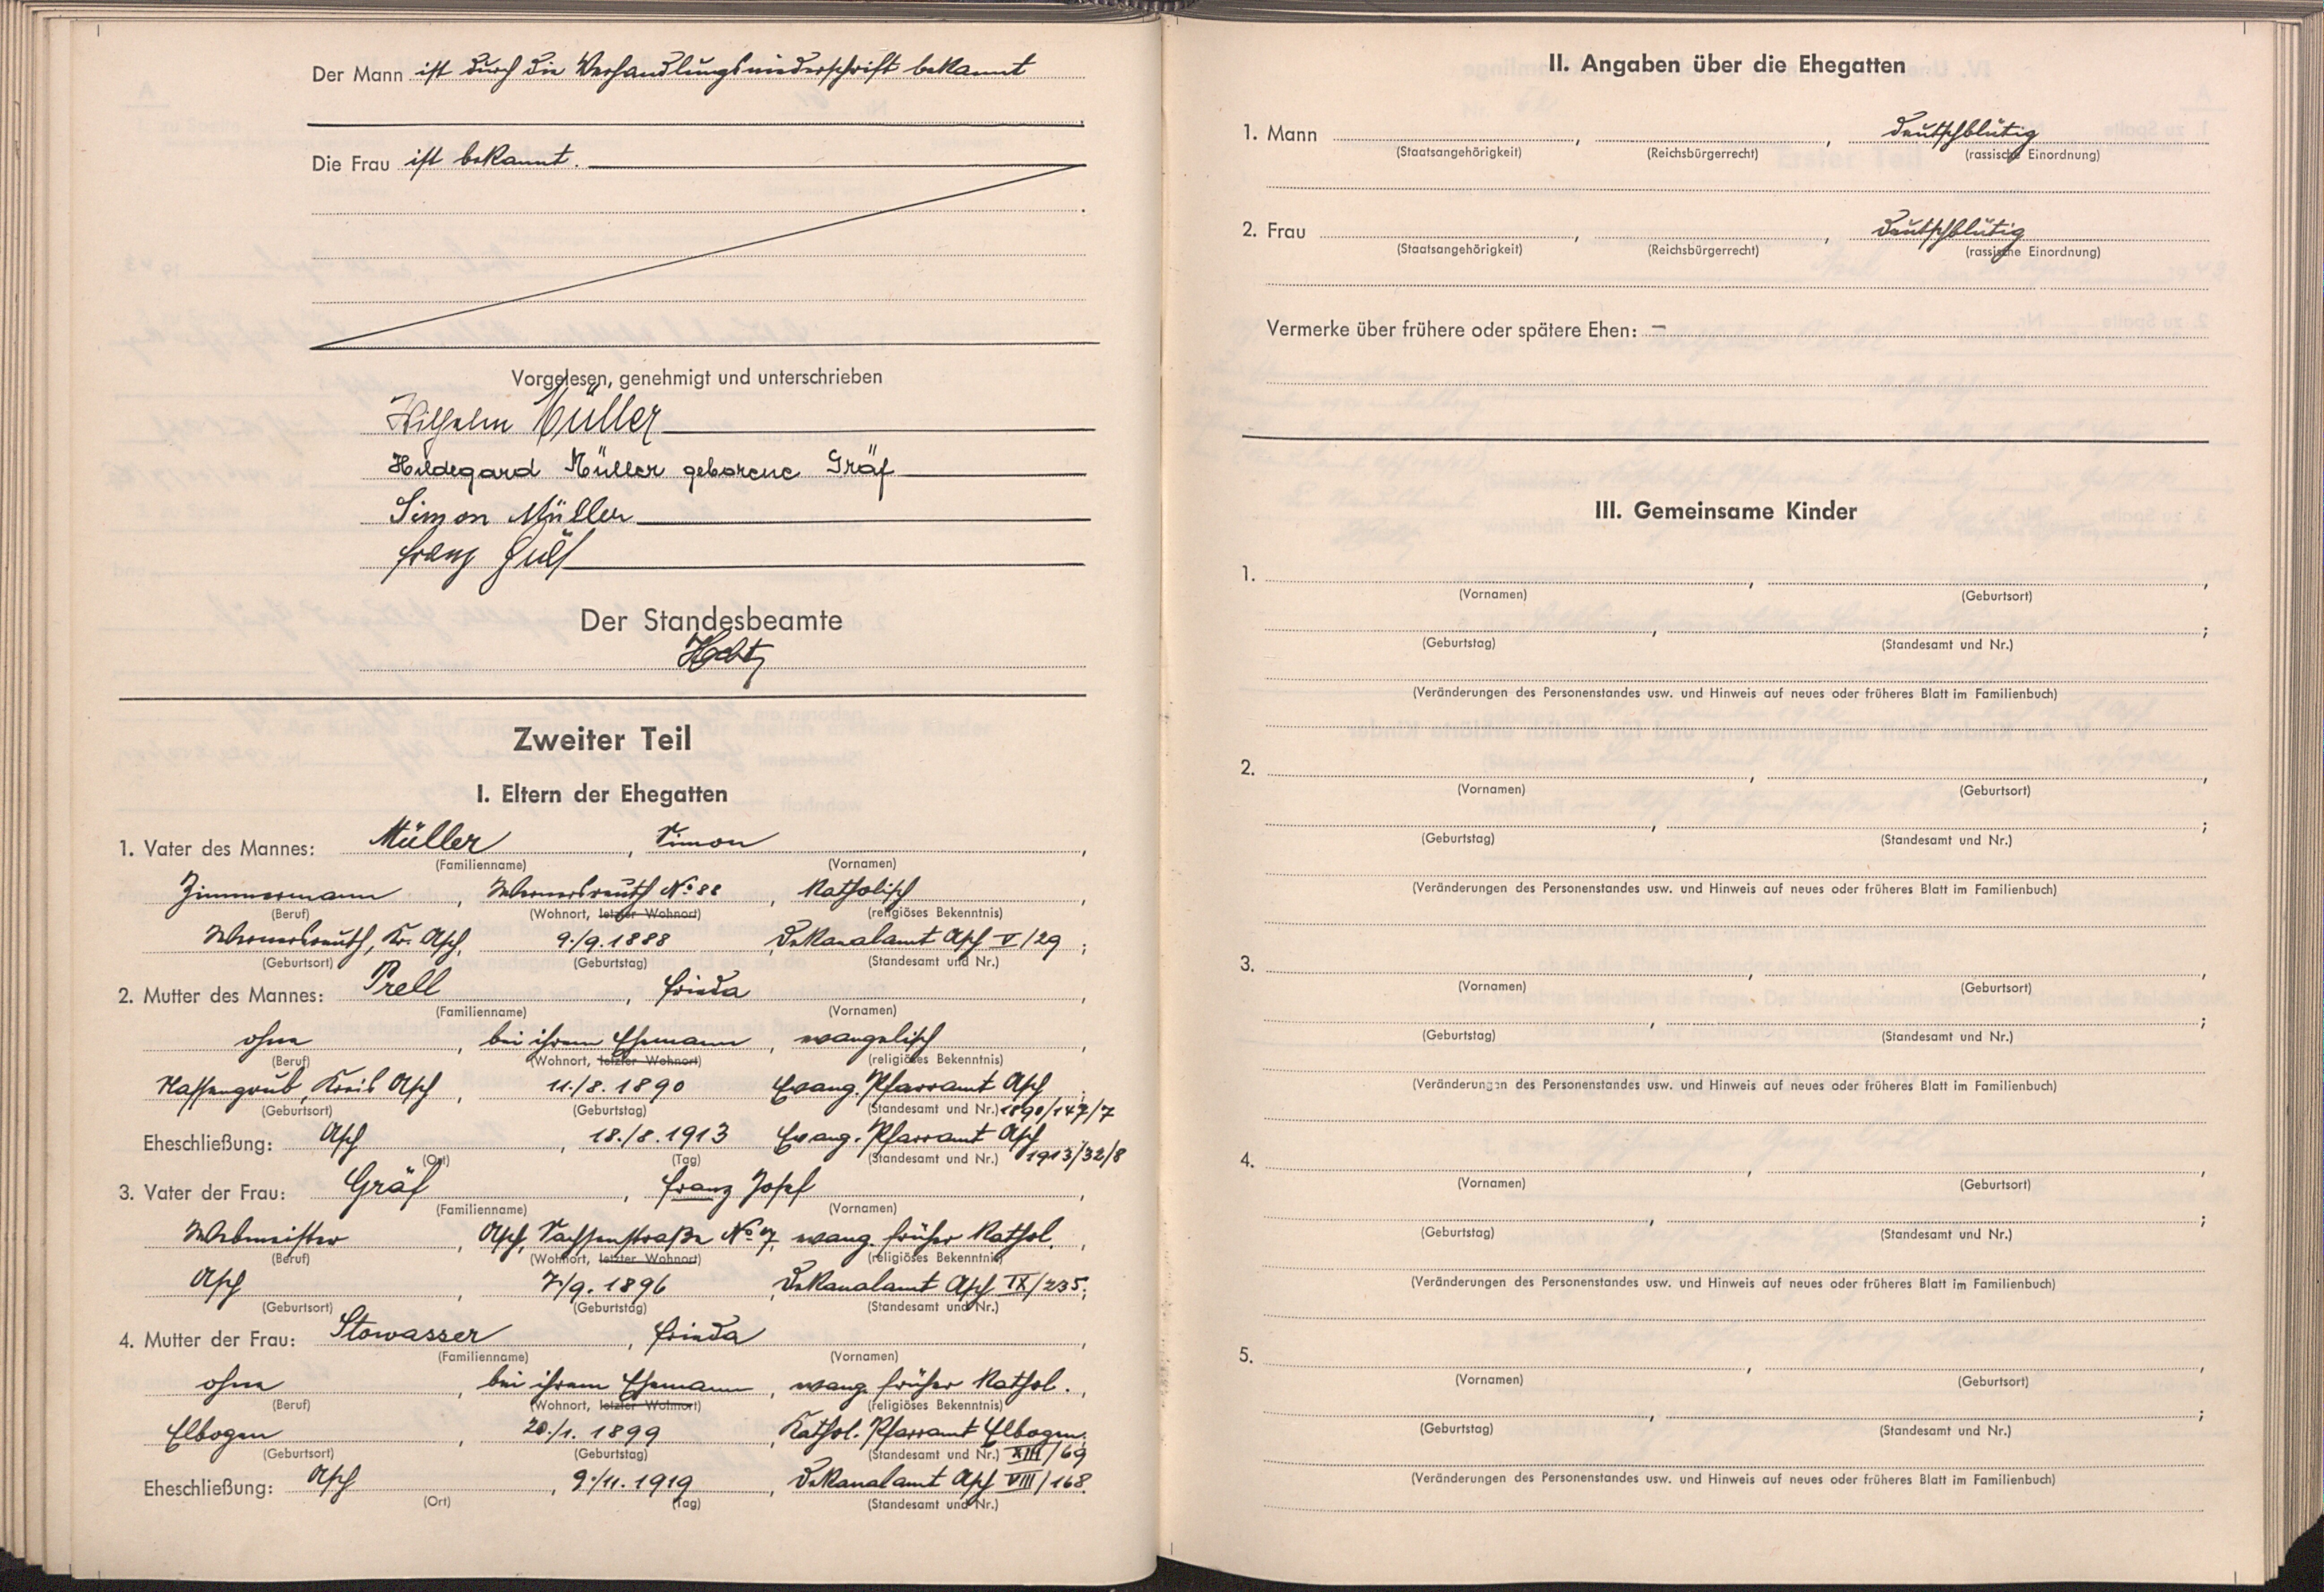 Der Mann ist durch die Verhandlungsniederschrift bekannt
Die Frau ist bekannt.
Vorgelesen, genehmigt und unterschrieben
Wilhelm Müller
Hildegard Müller geborene Gräf
Simon Müller
Franz Gräf
Der Standesbeamte
Zweiter Teil
I. Eltern der Ehegatten
1. Vater des Mannes: Müller, Simon,
(Familienname) (Vornamen)
Zimmermann, Wernersreuth No. 88, Katholisch
(Beruf) (Wohnort, letzter Wohnort) (religiöses Bekenntnis)
Wernersreuth, Kr. Asch, 9./9. 1888, Dekanalamt Asch V/29;
(Geburtsort) (Geburtstag) (Standesamt und Nr.)
2. Mutter des Mannes: Prell, Frieda,
(Familienname) (Vornamen)
ohne, bei ihrem Ehemann, evangelisch,
(Beruf) (Wohnort, letzter Wohnort) (religiöses Bekenntnis)
Nassengrub, Kreis Asch, 11./8. 1890 Evang. Pfarramt Asch;
(Geburtsort) (Geburtstag) (Standesamt und Nr.) 1890/147/7
Eheschließung: Asch, 18./8. 1913 Evang. Pfarramt Asch
(Ort) (Tag) (Standesamt und Nr.) 1913/32/8
3. Vater der Frau: Gräf, Franz Josef,
(Familienname) (Vornamen)
Webmeister, Asch, Sachsenstraße No. 7, evang. früher Kathol.,
(Beruf) (Wohnort, letzter Wohnort) (religiöses Bekenntnis)
Asch, 7./9. 1896, Dekanalamt Asch IX/235;
(Geburtsort) (Geburtstag) (Standesamt und Nr.)
4. Mutter der Frau: Stowasser, Frieda,
(Familienname) (Vornamen)
ohne, bei ihrem Ehemann, evang. früher Kathol.,
(Beruf) (Wohnort, letzter Wohnort) (religiöses Bekenntnis)
Elbogen, 20./1. 1899, Kathol. Pfarramt Elbogen;
(Geburtsort) (Geburtstag) (Standesamt und Nr.) XIII/69
Eheschließung: Asch, 9./11. 1919, Dekanalamt Asch VIII/168.
(Ort) (Tag) (Standesamt und Nr.)
II. Angaben über die Ehegatten
1. Mann , , deutschblütig
(Staatsangehörigkeit) (Reichsbürgerrecht) (rassische Einordnung)
2. Frau , , deutschblütig
(Staatsangehörigkeit) (Reichsbürgerrecht) (rassische Einordnung)
Vermerke über frühere oder spätere Ehen: —
III. Gemeinsame Kinder
1. , ,
(Vornamen) (Geburtsort)
, ;
(Geburtstag) (Standesamt und Nr.)
(Veränderungen des Personenstandes usw. und Hinweis auf neues oder früheres Blatt im Familienbuch)
2. , ,
(Vornamen) (Geburtsort)
, ;
(Geburtstag) (Standesamt und Nr.)
(Veränderungen des Personenstandes usw. und Hinweis auf neues oder früheres Blatt im Familienbuch)
3. , ,
(Vornamen) (Geburtsort)
, ;
(Geburtstag) (Standesamt und Nr.)
(Veränderungen des Personenstandes usw. und Hinweis auf neues oder früheres Blatt im Familienbuch)
4. , ,
(Vornamen) (Geburtsort)
, ;
(Geburtstag) (Standesamt und Nr.)
(Veränderungen des Personenstandes usw. und Hinweis auf neues oder früheres Blatt im Familienbuch)
5. , ,
(Vornamen) (Geburtsort)
, ;
(Geburtstag) (Standesamt und Nr.)
(Veränderungen des Personenstandes usw. und Hinweis auf neues oder früheres Blatt im Familienbuch)